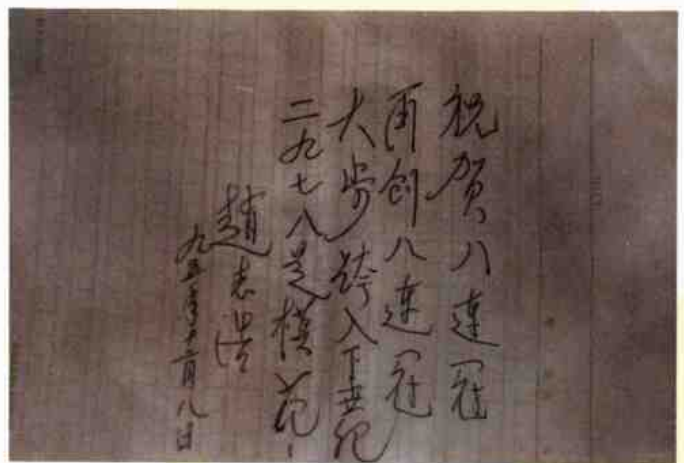 祝贺八连冠
再创八连冠
大步跨入下世纪
二九七八是模范!
赵志浩
九五年十二月八日